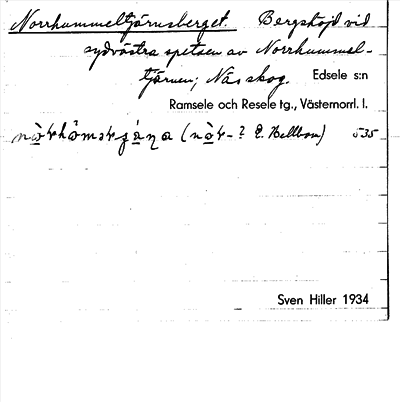 Norrhummeltjärnsberget. Bergshöjd vid
sydvästra spetsen av Norrhummel-
tjärnen; Näs skog. Edsele s:n
Ramsele och Resele tg., Västernorrl. l.
(nòr-? E. Hellbom) 535
Sven Hiller 1934